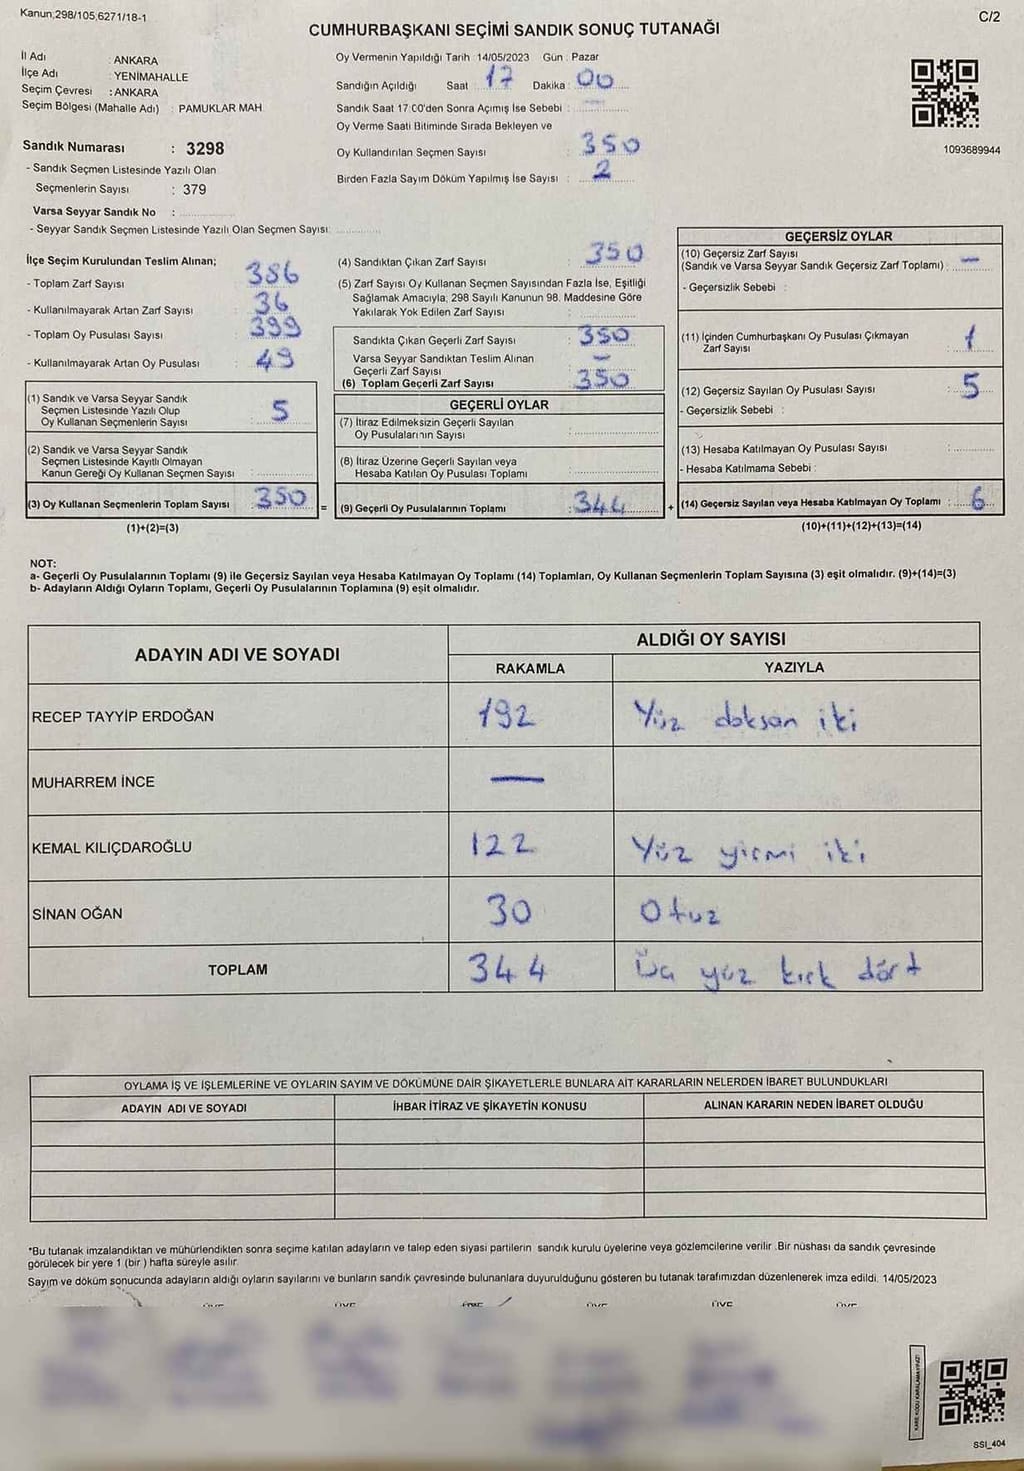 Kanun;298/105,6271/18-1
C/2
CUMHURBAŞKANI SEÇİMİ SANDIK SONUÇ TUTANAĞI
İl Adı : ANKARA
İlçe Adı : YENİMAHALLE
Seçim Çevresi : ANKARA
Seçim Bölgesi (Mahalle Adı) : PAMUKLAR MAH.
Oy Vermenin Yapıldığı Tarih : 14/05/2023 Gün : Pazar
Sandığın Açıldığı Saat 17 Dakika : 00
Sandık Saat 17 00'den Sonra Açımış İse Sebebi :
Oy Verme Saati Bitiminde Sırada Bekleyen ve
Oy Kullandırılan Seçmen Sayısı : 350
Birden Fazla Sayım Döküm Yapılmış İse Sayısı : 2
1093689944
Sandık Numarası : 3298
- Sandık Seçmen Listesinde Yazılı Olan
Seçmenlerin Sayısı : 379
Varsa Seyyar Sandık No :
- Seyyar Sandık Seçmen Listesinde Yazılı Olan Seçmen Sayısı:
İlçe Seçim Kurulundan Teslim Alınan;
- Toplam Zarf Sayısı : 386
- Kullanılmayarak Artan Zarf Sayısı : 36
- Toplam Oy Pusulası Sayısı : 399
- Kullanılmayarak Artan Oy Pusulası : 49
(1) Sandık ve Varsa Seyyar Sandık
Seçmen Listesinde Yazılı Olup
Oy Kullanan Seçmenlerin Sayısı : 5
(2) Sandık ve Varsa Seyyar Sandık
Seçmen Listesinde Kayıtlı Olmayan
Kanun Gereği Oy Kullanan Seçmen Sayısı :
(3) Oy Kullanan Seçmenlerin Toplam Sayısı : 350 =
(1)+(2)=(3)
(4) Sandıktan Çıkan Zarf Sayısı : 350
(5) Zarf Sayısı Oy Kullanan Seçmen Sayısından Fazla İse, Eşitliği
Sağlamak Amacıyla, 298 Sayılı Kanunun 98. Maddesine Göre
Yakılarak Yok Edilen Zarf Sayısı :
Sandıkta Çıkan Geçerli Zarf Sayısı : 350
Varsa Seyyar Sandıktan Teslim Alınan
Geçerli Zarf Sayısı : —
(6) Toplam Geçerli Zarf Sayısı : 350
GEÇERLİ OYLAR
(7) İtiraz Edilmeksizin Geçerli Sayılan
Oy Pusulalarının Sayısı :
(8) İtiraz Üzerine Geçerli Sayılan veya
Hesaba Katılan Oy Pusulası Toplamı :
(9) Geçerli Oy Pusulalarının Toplamı : 344 +
GEÇERSİZ OYLAR
(10) Geçersiz Zarf Sayısı
(Sandık ve Varsa Seyyar Sandık Geçersiz Zarf Toplamı) : —
- Geçersizlik Sebebi :
(11) İçinden Cumhurbaşkanı Oy Pusulası Çıkmayan
Zarf Sayısı : 1
(12) Geçersiz Sayılan Oy Pusulası Sayısı : 5
- Geçersizlik Sebebi :
(13) Hesaba Katılmayan Oy Pusulası Sayısı :
- Hesaba Katılmama Sebebi :
(14) Geçersiz Sayılan veya Hesaba Katılmayan Oy Toplamı : 6
(10)+(11)+(12)+(13)=(14)
NOT:
a- Geçerli Oy Pusulalarının Toplamı (9) ile Geçersiz Sayılan veya Hesaba Katılmayan Oy Toplamı (14) Toplamları, Oy Kullanan Seçmenlerin Toplam Sayısına (3) eşit olmalıdır. (9)+(14)=(3)
b- Adayların Aldığı Oyların Toplamı, Geçerli Oy Pusulalarının Toplamına (9) eşit olmalıdır.
ADAYIN ADI VE SOYADI ALDIĞI OY SAYISI
RAKAMLA YAZIYLA
RECEP TAYYİP ERDOĞAN 192 Yüz doksan iki
MUHARREM İNCE —
KEMAL KILIÇDAROĞLU 122 Yüz yirmi iki
SİNAN OĞAN 30 Otuz
TOPLAM 344 Üç yüz kırk dört
OYLAMA İŞ VE İŞLEMLERİNE VE OYLARIN SAYIM VE DÖKÜMÜNE DAİR ŞİKAYETLERLE BUNLARA AİT KARARLARIN NELERDEN İBARET BULUNDUKLARI
ADAYIN ADI VE SOYADI İHBAR İTİRAZ VE ŞİKAYETİN KONUSU ALINAN KARARIN NEDEN İBARET OLDUĞU
*Bu tutanak imzalandıktan ve mühürlendikten sonra seçime katılan adayların ve talep eden siyasi partilerin sandık kurulu üyelerine veya gözlemcilerine verilir .Bir nüshası da sandık çevresinde
görülecek bir yere 1 (bir ) hafta süreyle asılır.
Sayım ve döküm sonucunda adayların aldığı oyların sayılarını ve bunların sandık çevresinde bulunanlara duyurulduğunu gösteren bu tutanak tarafımızdan düzenlenerek imza edildi. 14/05/2023
ÜYE ÜYE ÜYE ÜYE ÜYE ÜYE
KARE KODU KARALAMAYINIZ!
SSI_404